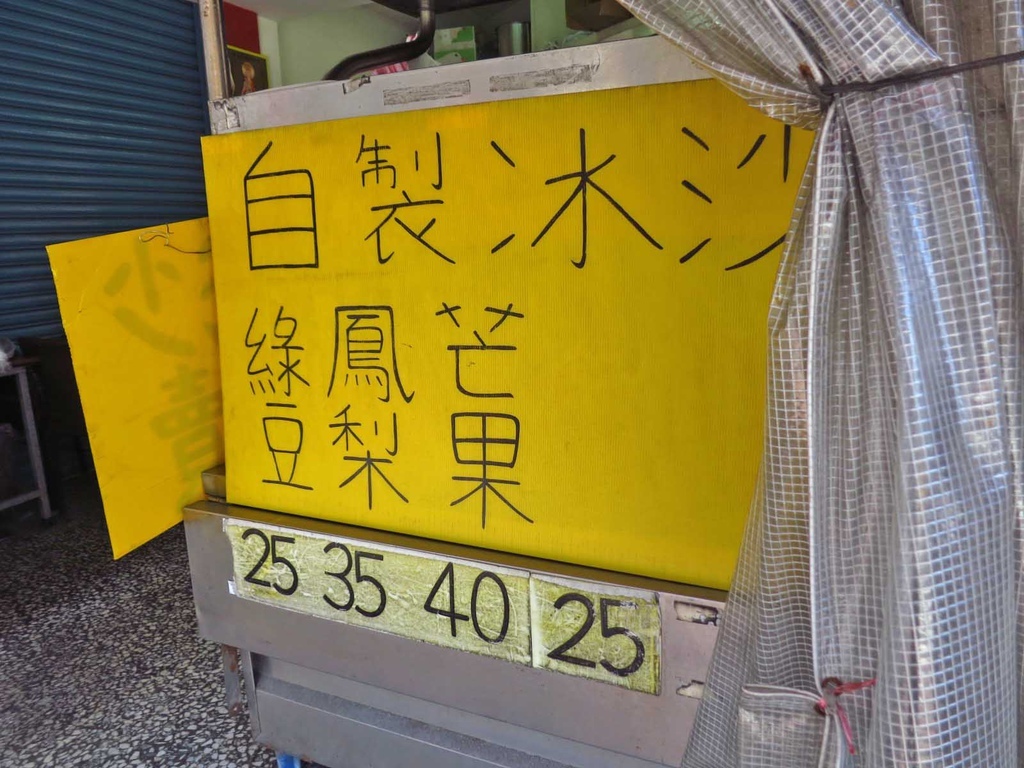 自製冰沙
綠豆 鳳梨 芒果
25 35 40 25